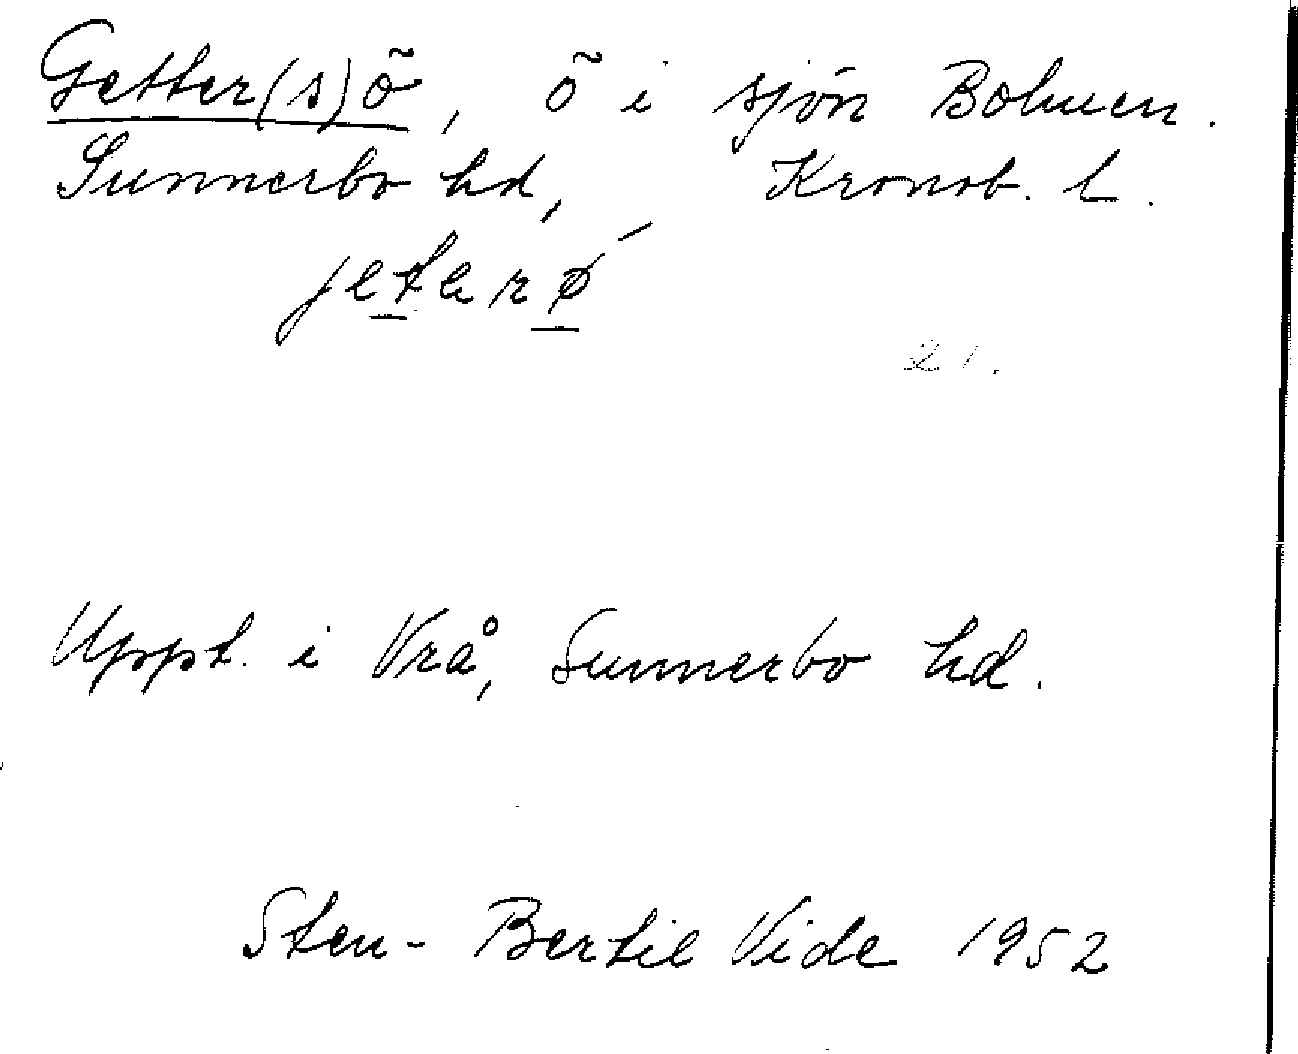 Getter(s)ö, ö i sjön Bolmen.
Sunnerbo hd, Kronob. l.
jeterø´
21.
Uppt. i Vrå, Sunnerbo hd.
Sten-Bertil Vide 1952